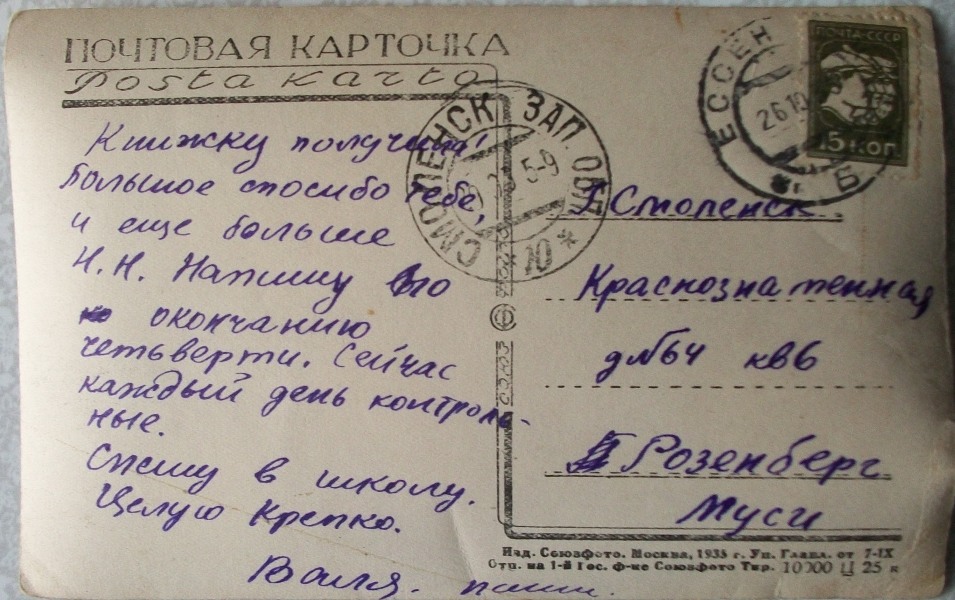 ПОЧТОВАЯ КАРТОЧКА
Posta karto
Книжку получила!
большое спосибо тебе,
и еще больше
Н.Н. Напишу по
окончанию
четверти. Сейчас
каждый день контроль-
ные.
Спешу в школу.
Целую крепко.
Валя. пиши.
ПОЧТА СССР
15 КОП
ЕССЕН
26.10
Б
СМОЛЕНСК ЗАП. ОБЛ.
10
Г Смоленск.
Краснознаменная
д №64 кв 6
Розенберг
Муси
Изд. Союзфото. Москва, 1933 г. Уп. Главл. от 7-IX
Отп. на 1-й Гос. ф-ке Союзфото Тир. 10000 Ц 25 к